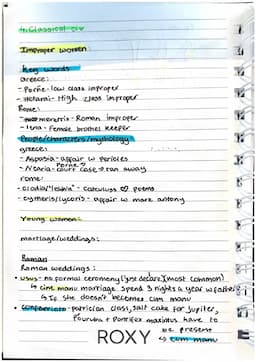 Classical civ
Improper women
Key words
Greece:
- Porne - low class improper
- Hetairai - High class improper
Rome:
- meretrix - Roman improper
- lena - Female brothel keeper
People/characters/mythology
greece:
- Aspasia - affair w Pericles
- Neaira - court case → ran away
Porne
rome:
- clodia/"lesbia" - catullus ♡ poems
- cytheris/lycoris - affair w mark antony
Young women:
marriage/weddings:
Roman
Roman weddings:
• usus - no formal ceremony (just declare) (most common)
↳ sine manu marriage spend 3 nights a year w father
↳ If she doesn't becomes cum manu
• confarreatio - patrician class, salt cake for Jupiter,
Pontifex maximus have to
be present
↳ cum manu
ROXY